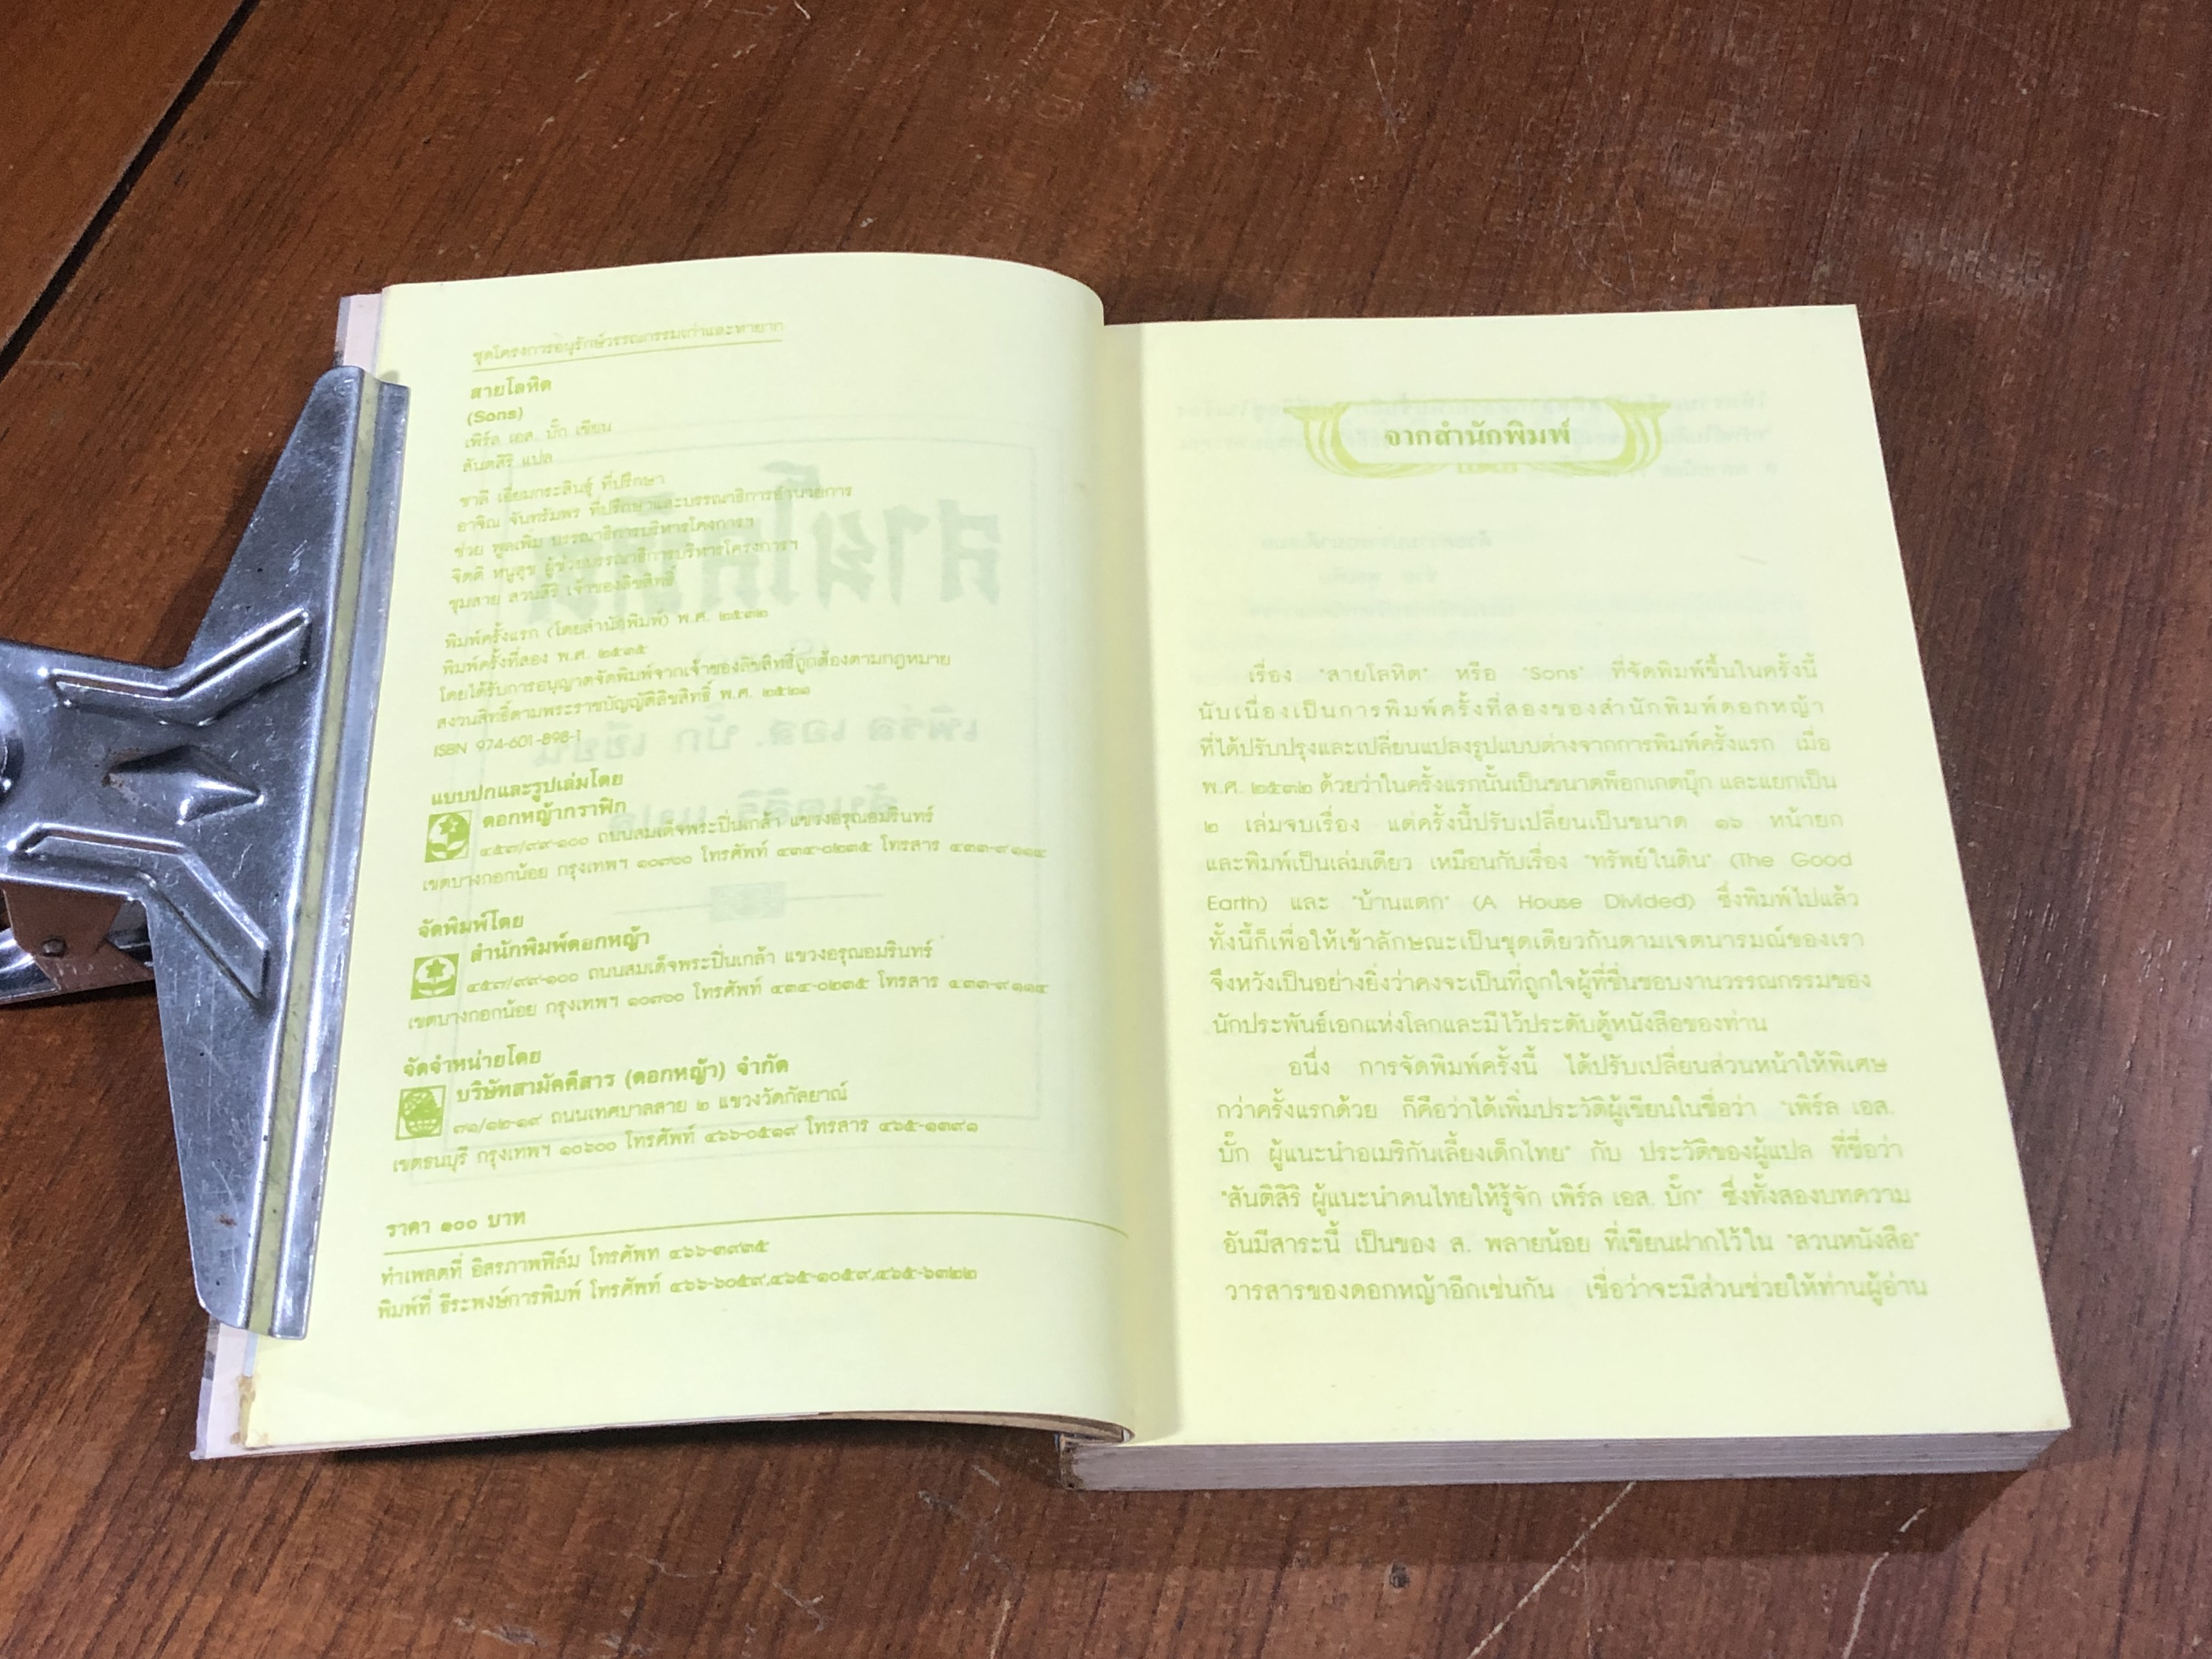 ชุดโครงการอนุรักษ์วรรณกรรมเก่าและหายาก
สายโลหิต
(Sons)
เพิร์ล เอส. บั๊ก เขียน
สันตสิริ แปล
ชาลี เอี่ยมกระสินธุ์ ที่ปรึกษา
อาจิณ จันทรัมพร ที่ปรึกษาและบรรณาธิการอำนวยการ
ช่วย พูลเพิ่ม บรรณาธิการบริหารโครงการฯ
จิตติ หนูสุข ผู้ช่วยบรรณาธิการบริหารโครงการฯ
ชุมสาย สวนสิริ เจ้าของลิขสิทธิ์
พิมพ์ครั้งแรก (โดยสำนักพิมพ์) พ.ศ. ๒๕๓๒
พิมพ์ครั้งที่สอง พ.ศ. ๒๕๓๕
โดยได้รับการอนุญาตจัดพิมพ์จากเจ้าของลิขสิทธิ์ถูกต้องตามกฎหมาย
สงวนสิทธิ์ตามพระราชบัญญัติลิขสิทธิ์ พ.ศ. ๒๕๒๑
ISBN 974-601-898-1
แบบปกและรูปเล่มโดย
ดอกหญ้ากราฟิก
๔๕๗/๙๙-๑๐๐ ถนนสมเด็จพระปิ่นเกล้า แขวงอรุณอมรินทร์
เขตบางกอกน้อย กรุงเทพฯ ๑๐๗๐๐ โทรศัพท์ ๔๓๔-๐๒๓๕ โทรสาร ๔๓๓-๙๑๑๔
จัดพิมพ์โดย
สำนักพิมพ์ดอกหญ้า
๔๕๗/๙๙-๑๐๐ ถนนสมเด็จพระปิ่นเกล้า แขวงอรุณอมรินทร์
เขตบางกอกน้อย กรุงเทพฯ ๑๐๗๐๐ โทรศัพท์ ๔๓๔-๐๒๓๕ โทรสาร ๔๓๓-๙๑๑๔
จัดจำหน่ายโดย
บริษัทสามัคคีสาร (ดอกหญ้า) จำกัด
๓๑/๑๒-๑๙ ถนนเทศบาลสาย ๒ แขวงวัดกัลยาณ์
เขตธนบุรี กรุงเทพฯ ๑๐๖๐๐ โทรศัพท์ ๔๖๖-๐๕๑๙ โทรสาร ๔๖๕-๑๓๙๑
ราคา ๑๐๐ บาท
ทำเพลตที่ อิสรภาพฟิล์ม โทรศัพท ๔๖๖-๓๙๓๕
พิมพ์ที่ ธีระพงษ์การพิมพ์ โทรศัพท์ ๔๖๖-๖๐๕๙,๔๖๕-๑๐๕๙,๔๖๕-๖๓๒๒
จากสำนักพิมพ์
เรื่อง "สายโลหิต" หรือ "Sons" ที่จัดพิมพ์ขึ้นในครั้งนี้
นับเนื่องเป็นการพิมพ์ครั้งที่สองของสำนักพิมพ์ดอกหญ้า
ที่ได้ปรับปรุงและเปลี่ยนแปลงรูปแบบต่างจากการพิมพ์ครั้งแรก เมื่อ
พ.ศ. ๒๕๓๒ ด้วยว่าในครั้งแรกนั้นเป็นขนาดพ็อกเกตบุ๊ก และแยกเป็น
๒ เล่มจบเรื่อง แต่ครั้งนี้ปรับเปลี่ยนเป็นขนาด ๑๖ หน้ายก
และพิมพ์เป็นเล่มเดียว เหมือนกับเรื่อง "ทรัพย์ในดิน" (The Good
Earth) และ "บ้านแตก" (A House Divided) ซึ่งพิมพ์ไปแล้ว
ทั้งนี้ก็เพื่อให้เข้าลักษณะเป็นชุดเดียวกันตามเจตนารมณ์ของเรา
จึงหวังเป็นอย่างยิ่งว่าคงจะเป็นที่ถูกใจผู้ที่ชื่นชอบงานวรรณกรรมของ
นักประพันธ์เอกแห่งโลกและมีไว้ประดับตู้หนังสือของท่าน
อนึ่ง การจัดพิมพ์ครั้งนี้ ได้ปรับเปลี่ยนส่วนหน้าให้พิเศษ
กว่าครั้งแรกด้วย ก็คือว่าได้เพิ่มประวัติผู้เขียนในชื่อว่า "เพิร์ล เอส.
บั๊ก ผู้แนะนำอเมริกันเลี้ยงเด็กไทย" กับ ประวัติของผู้แปล ที่ชื่อว่า
"สันติสิริ ผู้แนะนำคนไทยให้รู้จัก เพิร์ล เอส. บั๊ก" ซึ่งทั้งสองบทความ
อันมีสาระนี้ เป็นของ ส. พลายน้อย ที่เขียนฝากไว้ใน "สวนหนังสือ"
วารสารของดอกหญ้าอีกเช่นกัน เชื่อว่าจะมีส่วนช่วยให้ท่านผู้อ่าน